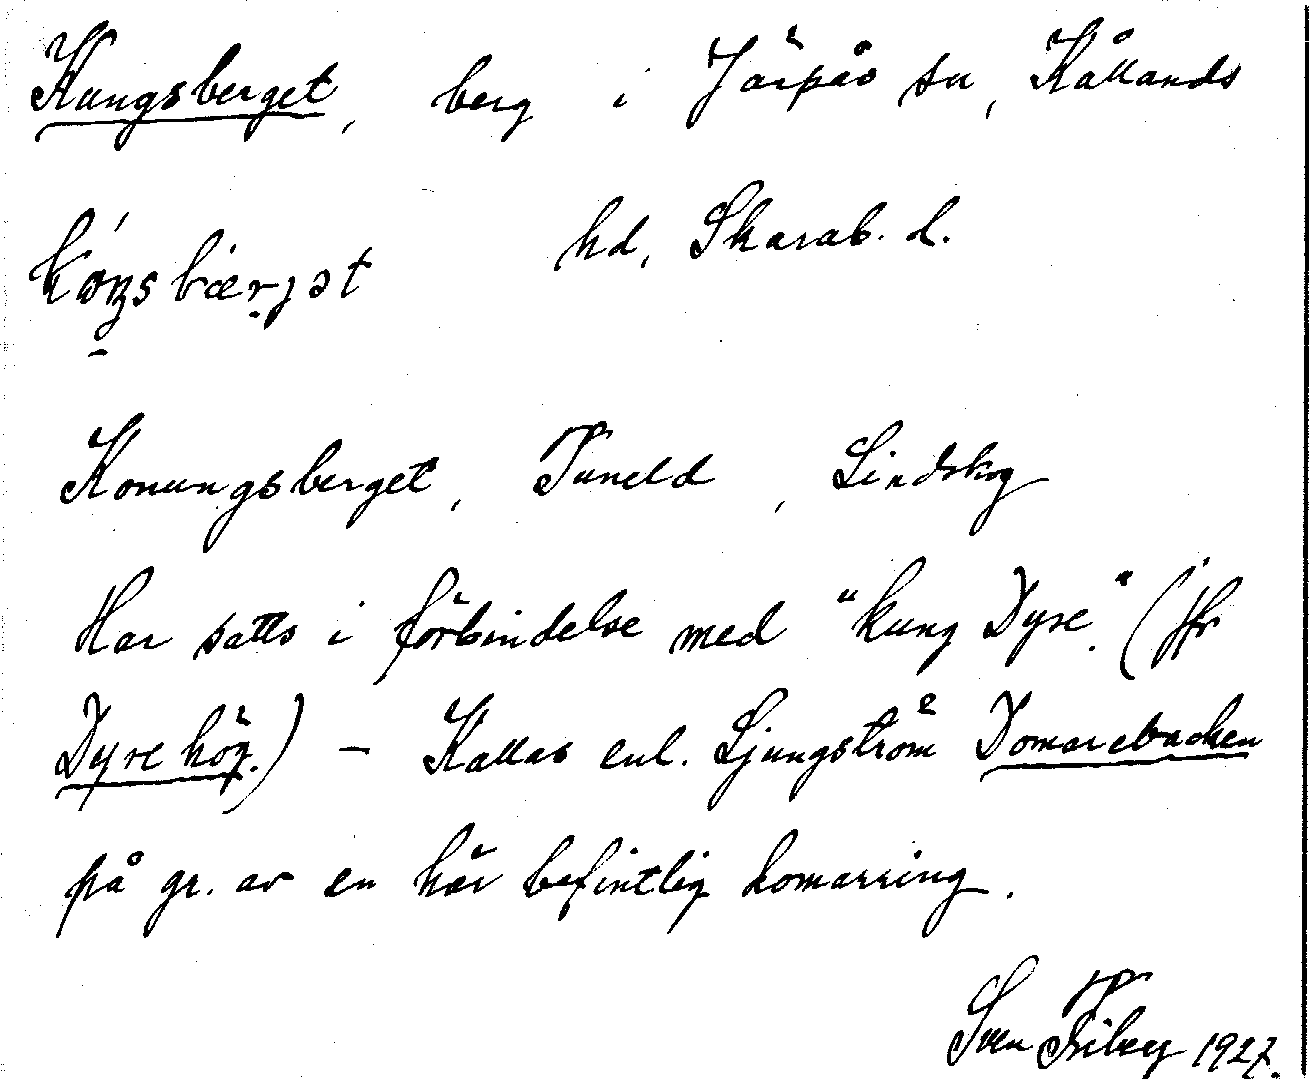 Kungsberget, berg i Järpås sn, Kållands
hd, Skarab. l.
Konungsberget, Tuneld, Lindskog
Har satts i förbindelse med "kung Dyre". (jfr
Dyre hög.) – Kallas enl. Ljungström Domarebacken
på gr. av en här befintlig domarring.
Sven Friberg 1927.